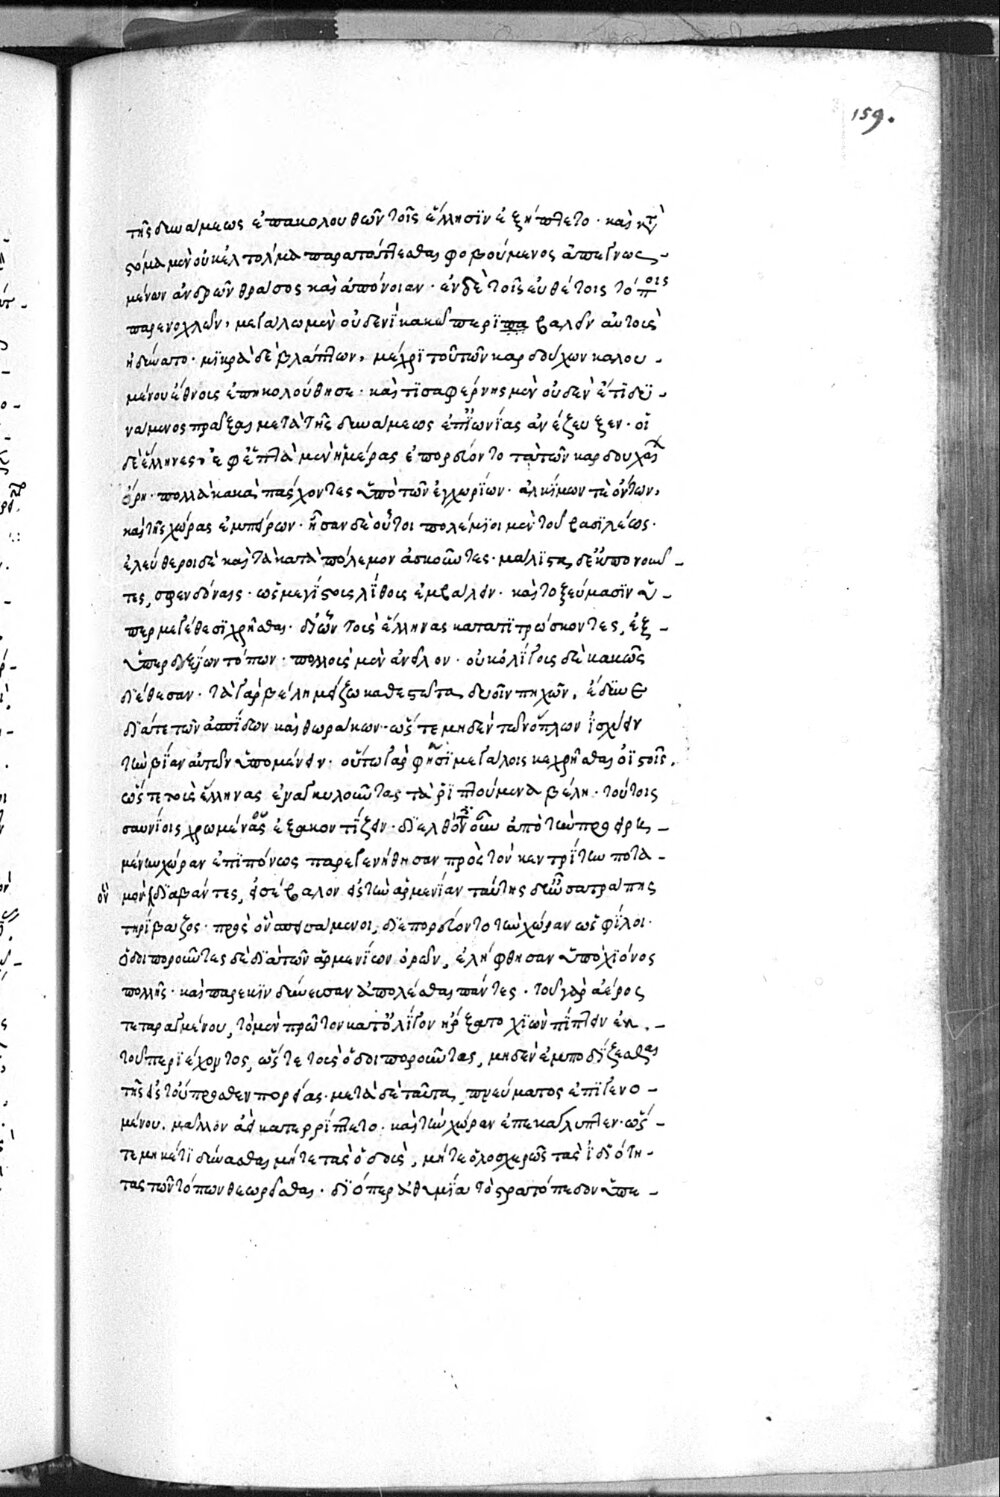 159.
τῆς δυνάμεως ἐπακολουθῶν τοῖς ἕλλησϊν ἐξήπτετο · καὶ κατὰ
στόμα μὲν οὐκ ἐτόλμα παρατάττεσθαι φοβούμενος ἀπεγνωσ-
μένων ἀνδρῶν θράσος καὶ ἀπόνοιαν · ἐν δὲ τοῖς εὐθέτοις τόποις
παρενοχλῶν, μεγάλω μὲν οὐδενῒ κακῶ περϊβαλεῖν αὐτοὺς
ἠδύνατο · μϊκρὰ δὲ βλάπτων, μέχρϊ τοῦ τῶν καρδούχων καλου-
μένου ἔθνους ἐπηκολούθησε · καὶ τϊσαφέρνης μὲν οὐδὲν ἔτϊ δυ-
νάμενος πρᾶξαι μετὰ τῆς δυνάμεως ἐπ' ἰωνίας ἀνέζευξεν · οἱ
δὲ ἕλληνες, ἐφ' ἑπτὰ μὲν ἡμέρας ἐπορεύοντο τὰ τῶν καρδούχων
ὄρη · πολλὰ κακὰ πάσχοντες ὑπὸ τῶν ἐγχωρίων · ἀλκίμων τὲ ὄντων,
καὶ τῆς χώρας ἐμπείρων · ἦσαν δὲ οὗτοι πολέμϊοι μὲν τοῦ βασϊλέως ·
ἐλεύθεροι δὲ καὶ τὰ κατὰ πόλεμον ἀσκοῦντες · μάλϊστα δὲ ἐκπονοῦν-
τες, σφενδόναις · ὡς μεγίστοις λίθοις ἐμβάλειν · καὶ τοξεύμασϊν ὑ-
περμεγέθεσϊ χρῆσθαι · δι' ὧν τοὺς ἕλληνας κατατϊτρώσκοντες, ἐξ
ὑπερδεξίων τόπων · πολλοὺς μὲν ἀνεῖλον · οὐκ ὀλίγους δὲ κακῶς
δϊέθεσαν · τὰ γὰρ βέλη μείζω καθεστῶτα δυοῖν πηχῶν, ἔδϋνε
δϊά τε τῶν ἀσπίδων καὶ θωράκων · ὥστε μηδὲν τῶν ὅπλων ἰσχύειν
τὴν βίαν αὐτῶν ὑπομένειν · οὕτω γάρ φησϊ μεγάλοις κεχρῆσθαι οϊστοῖς,
ὥστε τοὺς ἕλληνας ἐναγκυλοῦντας τὰ ῥϊπτούμενα βέλη · τούτοις
σαυνίοις χρωμένους ἐξακοντίζειν · δϊελθόντες οὖν ἀπὸ τὴν προειρη-
μένην χώραν ἐπϊπόνως παρεγενήθησαν πρὸς τὸν κεντρίτην ποτα-
ὃν μὸν διαβάντες, εἰσέβαλον εἰς τὴν ἀρμενίαν ταύτης δ' ἦν σατράπης
τηρίβαζος · πρὸς ὃν σπεισάμενοι, δϊεπορεύοντο τὴν χώραν ὡς φίλοι ·
ὁδοιποροῦντες δὲ δϊὰ τῶν ἀρμενίων ὀρῶν, ἐλήφθησαν ὑπὸ χϊόνος
πολλῆς · καὶ παρεκϊνδύνευσαν ἀπολέσθαι πάντες · τοῦ γὰρ ἀέρος
τεταραγμένου, τὸ μὲν πρῶτον κατ' ὀλίγον ἤρξατο χϊὼν πίπτειν ἐκ
τοῦ περϊέχοντος, ὥστε τοὺς ὁδοιποροῦντας, μηδὲν ἐμποδίζεσθαι
τῆς εἰς τοὔπροσθεν πορείας · μετὰ δὲ ταῦτα, πνεύματος ἐπϊγενο-
μένου, μᾶλλον ἀεὶ κατερρίπτετο · καὶ τὴν χώραν ἐπεκάλυπτεν · ὥσ-
τε μηκέτϊ δύνασθαι μήτε τὰς ὁδοὺς, μήτε ὁλοσχερῶς τὰς ἰδϊότη-
τας τῶν τόπων θεωρεῖσθαι · δϊόπερ ἀθυμία τὸ στρατόπεδον ὑπε-